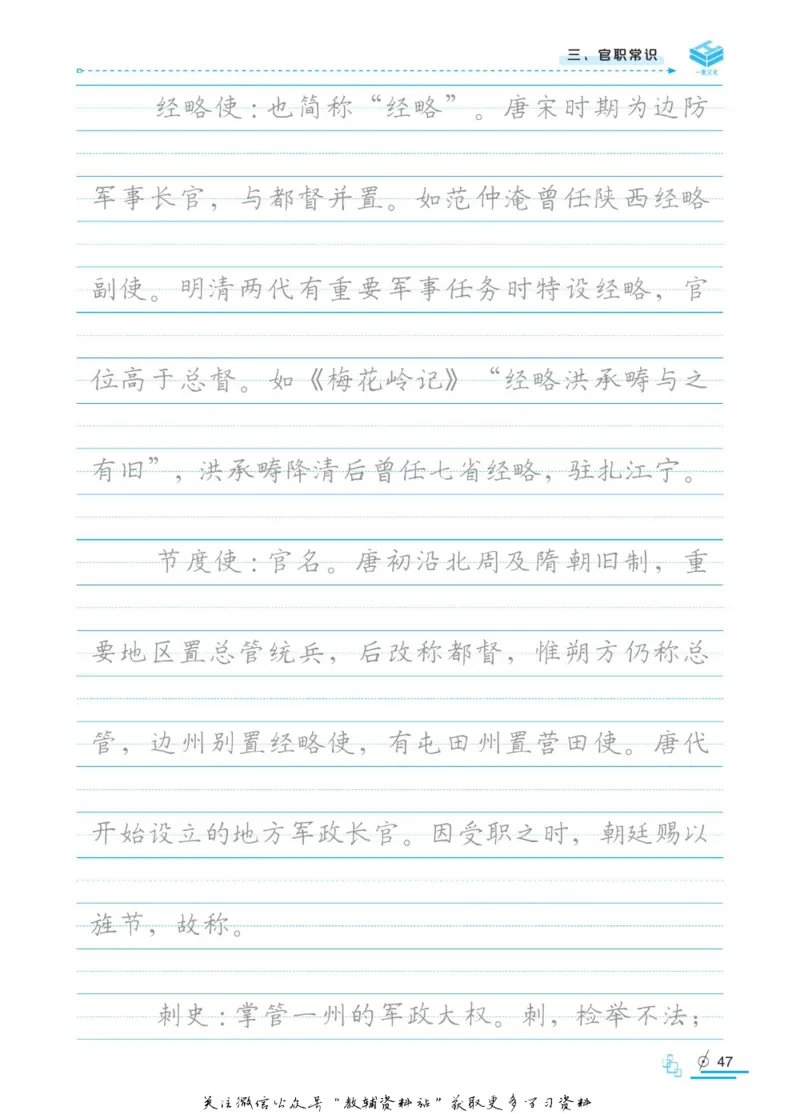 三、官职常识
一本文化
经略使:也简称“经略”。唐宋时期为边防
军事长官，与都督并置。如范仲淹曾任陕西经略
副使。明清两代有重要军事任务时特设经略，官
位高于总督。如《梅花岭记》“经略洪承畴与之
有旧”，洪承畴降清后曾任七省经略，驻扎江宁。
节度使:官名。唐初沿北周及隋朝旧制，重
要地区置总管统兵，后改称都督，惟朔方仍称总
管，边州别置经略使，有屯田州置营田使。唐代
开始设立的地方军政长官。因受职之时，朝廷赐以
旌节，故称。
刺史:掌管一州的军政大权。刺，检举不法；
47
关注微信公众号“教辅资料站”获取更多学习资料